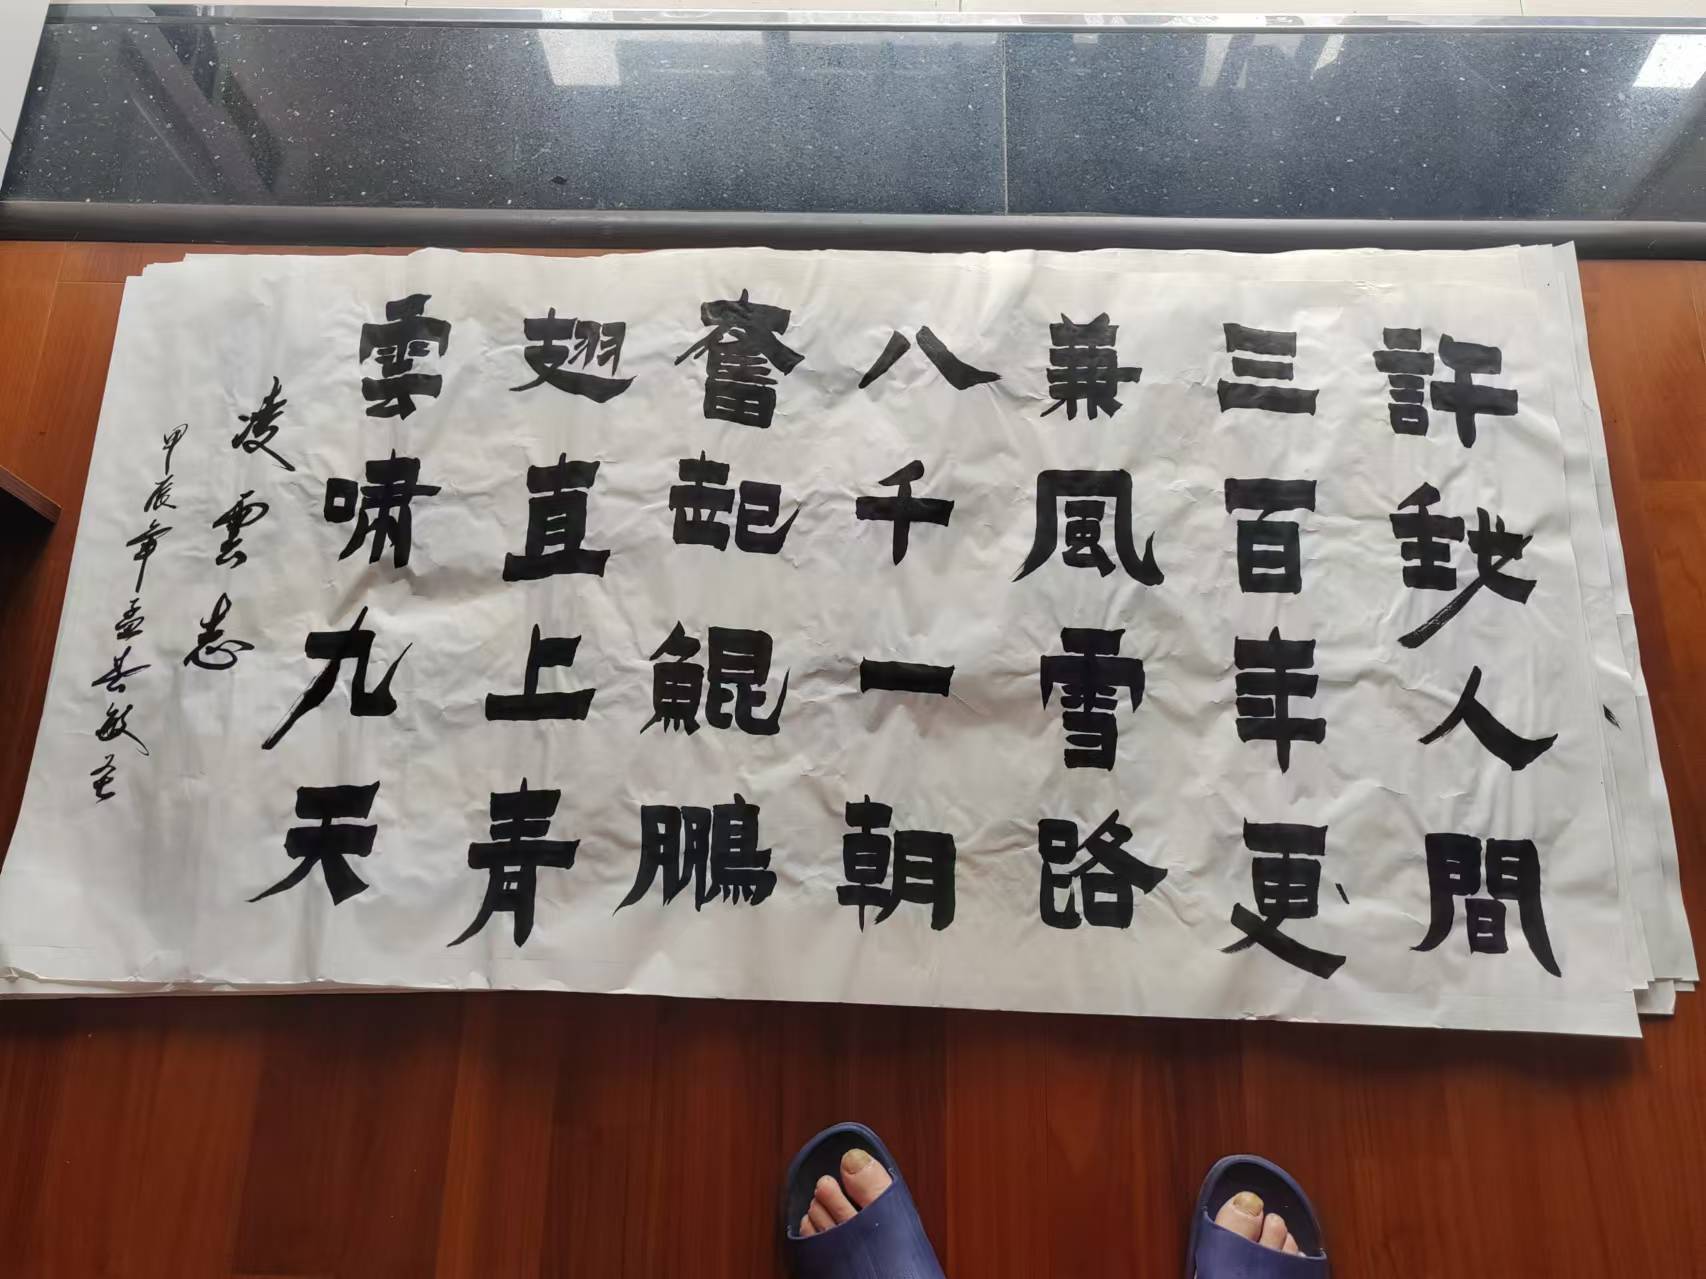 許我人間
三百年更
兼風雪路
八千一朝
奮起鯤鵬
翅直上青
雲啸九天
凌雲志
甲辰年孟敏书